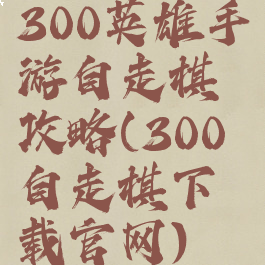 300英雄手
游自走棋
攻略(300
自走棋下
载官网)